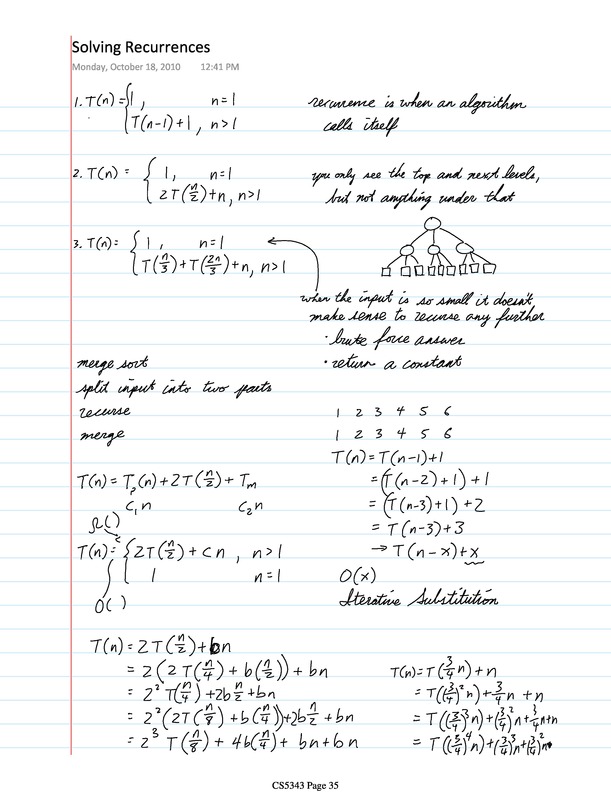 Solving Recurrences
Monday, October 18, 2010 12:41 PM
1. T(n) = { 1, n=1
T(n-1)+1, n>1
recurrence is when an algorithm
calls itself
2. T(n) = { 1, n=1
2T(n/2)+n, n>1
you only see the top and next levels,
but not anything under that
3. T(n) = { 1, n=1
T(n/3)+T(2n/3)+n, n>1
when the input is so small it doesn't
make sense to recurse any further
· brute force answer
· return a constant
merge sort
split input into two parts
recurse
merge
1 2 3 4 5 6
1 2 3 4 5 6
T(n) = T(n-1)+1
= (T(n-2)+1)+1
= (T(n-3)+1)+2
= T(n-3)+3
→ T(n-x)+x
O(x)
Iterative Substitution
T(n) = Tp(n)+2T(n/2)+Tm
c₁n c₂n
Ω( )
T(n) = { 2T(n/2)+cn, n>1
1 n=1
O( )
T(n) = 2T(n/2)+bn
= 2(2T(n/4)+b(n/2))+bn
= 2²T(n/4)+2b n/2+bn
= 2²(2T(n/8)+b(n/4))+2b n/2+bn
= 2³ T(n/8)+4b(n/4)+bn+bn
T(n) = T(3/4 n)+n
= T((3/4)²n)+3/4 n+n
= T((3/4)³n)+(3/4)²n+3/4 n+n
= T((3/4)⁴n)+(3/4)³n+(3/4)²n
CS5343 Page 35